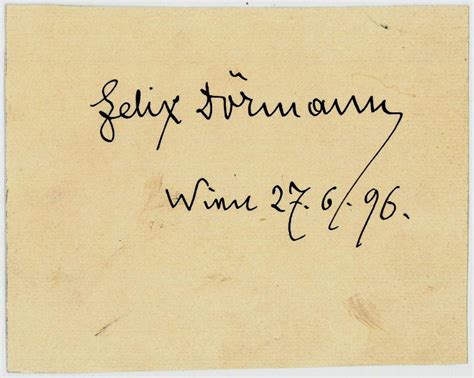 Felix Dörmann
Wien 27.6.96.